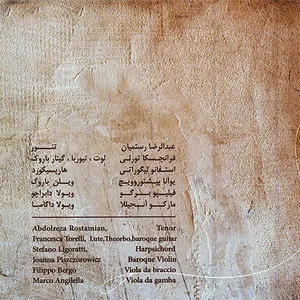 عبدالرضا رستمیان تنـــور
فرانچسکا تورلی لوت ، تیوربا ، گیتار باروک
استفانو لیگوراتی هارپسیکورد
یوانا پیشتزوویچ ویلن باروک
فیلیپو برگو ویولا دابراچو
مارکو آنجیللا ویولا داگامبا
Abdolreza Rostamian, Tenor
Francesca Torelli, Lute,Theorbo,baroque guitar
Stefano Ligoratti, Harpsichord
Joanna Piszczorowicz Baroque Violin
Filippo Bergo Viola da braccio
Marco Angilella Viola da gamba